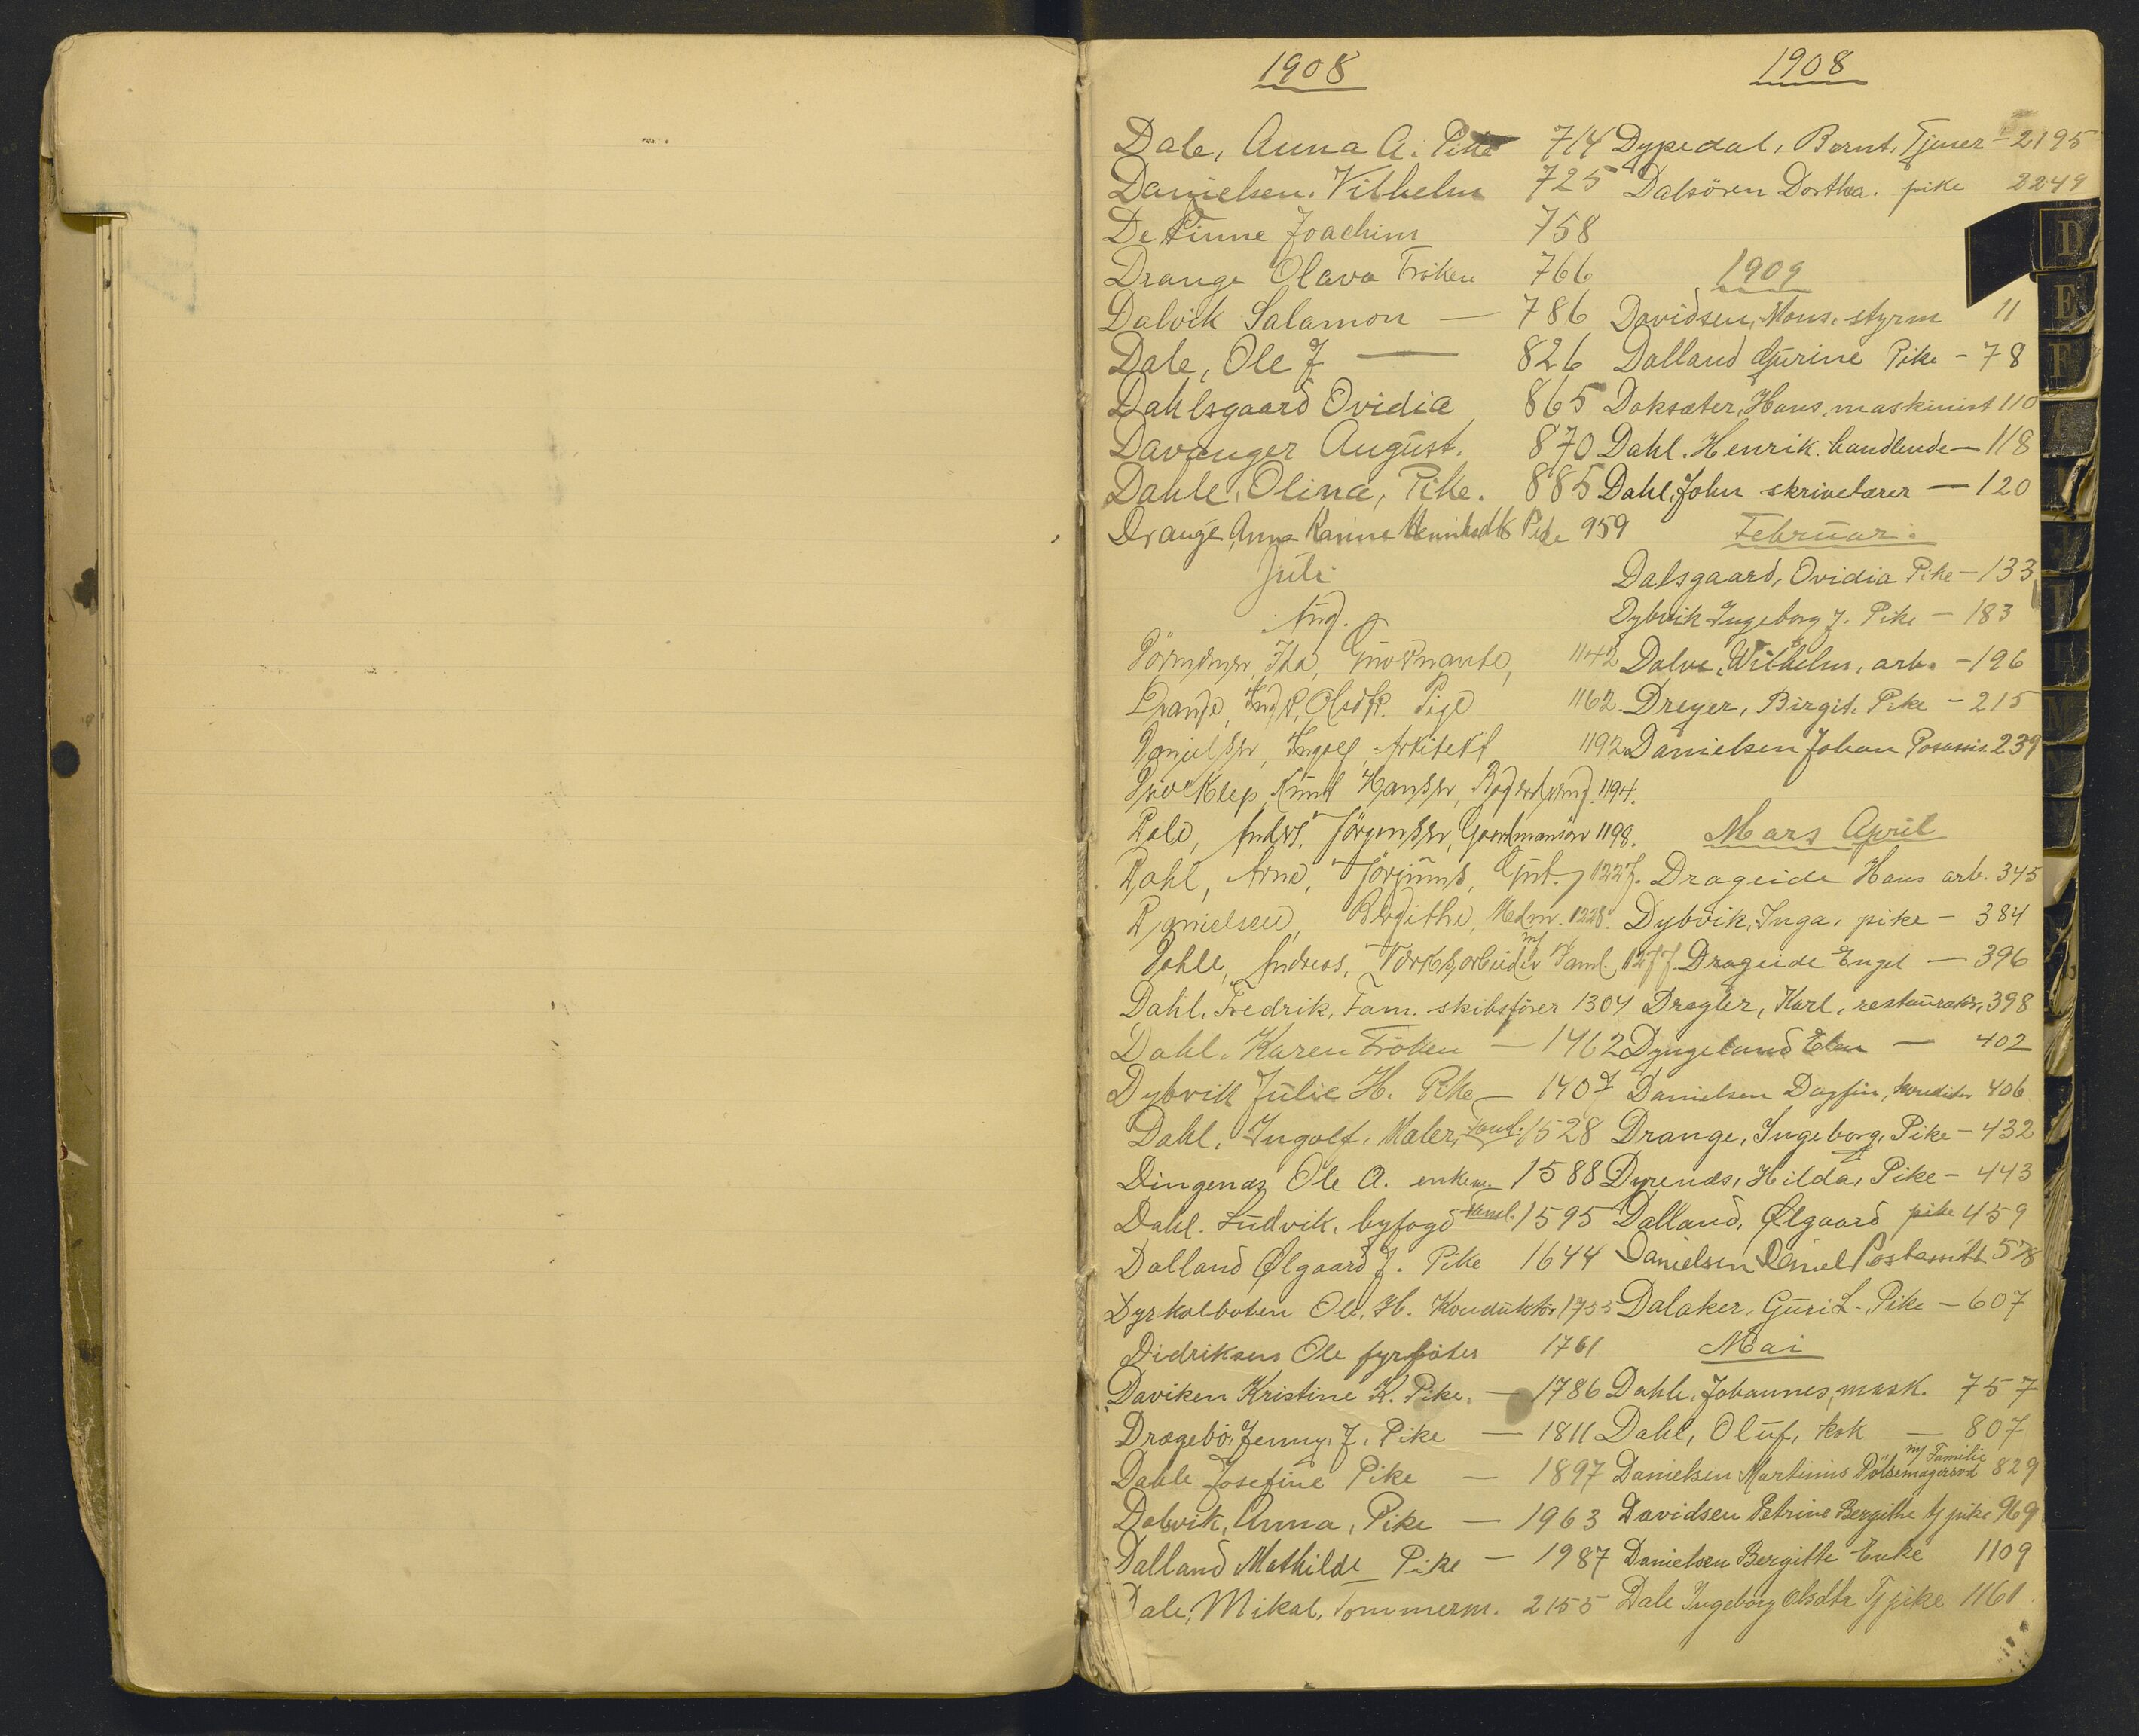 1908
Dale, Anna A. Pike 714
Danielsen. Vilhelm 725
De Finne Joachim 758
Drange Olava Frøken 766
Dalvik Salamon — 786
Dale, Ole J — 826
Dahlsgaard Ovidia 865
Davanger August. 870
Dahle, Olina, Pike. 885
Drange, Anna Karine Henriksdtr Pike 959
Juli
Aug.
Ida, 1142
Drange, Olsdtr. Pige 1162.
Danielsen, Ingolf, Arkitekt 1192
Knut Hansen, 1194.
Dale, Anders, Jörgensen, Gaardmansön 1198.
Dahl, Arne, 1227.
Danielsen, Bergithe, Madm. 1228.
Dahle, Andreas, Værksarbeider m/ Faml. 1277
Dahl. Fredrik, Fam. skibsfører 1304
Dahl. Karen Frøken — 1462
Dybvik Julie H. Pike — 1407
Dahl. Ingolf. Maler, Faml. 1528
Dingenæs Ole A. enkem. 1588
Dahl. Ludvik. byfogd Faml. 1595
Dalland Ølgaard J. Pike 1644
Dyrkolbotn Ole. H. Konduktør 1755
Didriksen Ole fyrbøter 1761
Daviken Kristine K. Pike. — 1786
Dragebö, Jenny. J. Pike — 1811
Dahle Josefine Pike — 1897
Dalvik, Anna, Pike — 1963
Dalland Mathilde Pike — 1987
Dale, Mikal, Tømmerm. 2155
1908
Dypedal, Bernt, Tjener — 2195
Dalsören Dorthea. pike 2249
1909
Davidsen, Mons. styrm 11
Dalland Gurine Pike — 78
Doksæter, Hans, maskinist 110
Dahl. Henrik. handlende — 118
Dahl, John skrivelærer — 120
Februar.
Dalsgaard, Ovidia Pike — 133
Dybvik Ingeborg J. Pike — 183
Dalve, Wilhelm, arb. — 196
Dreyer, Birgit. Pike — 215
Danielsen Johan Posassis. 239
Mars April
Drageide Hans arb. 345
Dybvik, Inga, pike — 384
Drageide Engel — 396
Karl, restauratør, 398
Dyngeland Elen — 402
Danielsen Dagfin, konditor 406
Drange, Ingeborg, Pike — 432
Dyrenæs, Hilda, Pike — 443
Dalland, Ølgaard pike 459
Danielsen Daniel Postassistt 578
Dalaker, Guri L. Pike — 607
Mai
Dahle, Johannes, mask. 757
Dahl, Oluf, kok — 807
Danielsen Martinius Pølsemagersvd m/ Familie 829
Davidsen Petrine Bergithe tj pike 969
Danielsen Bergitte Enke 1109
Dale Ingeborg Olsdtr Tj pike 1161.
D
E
F